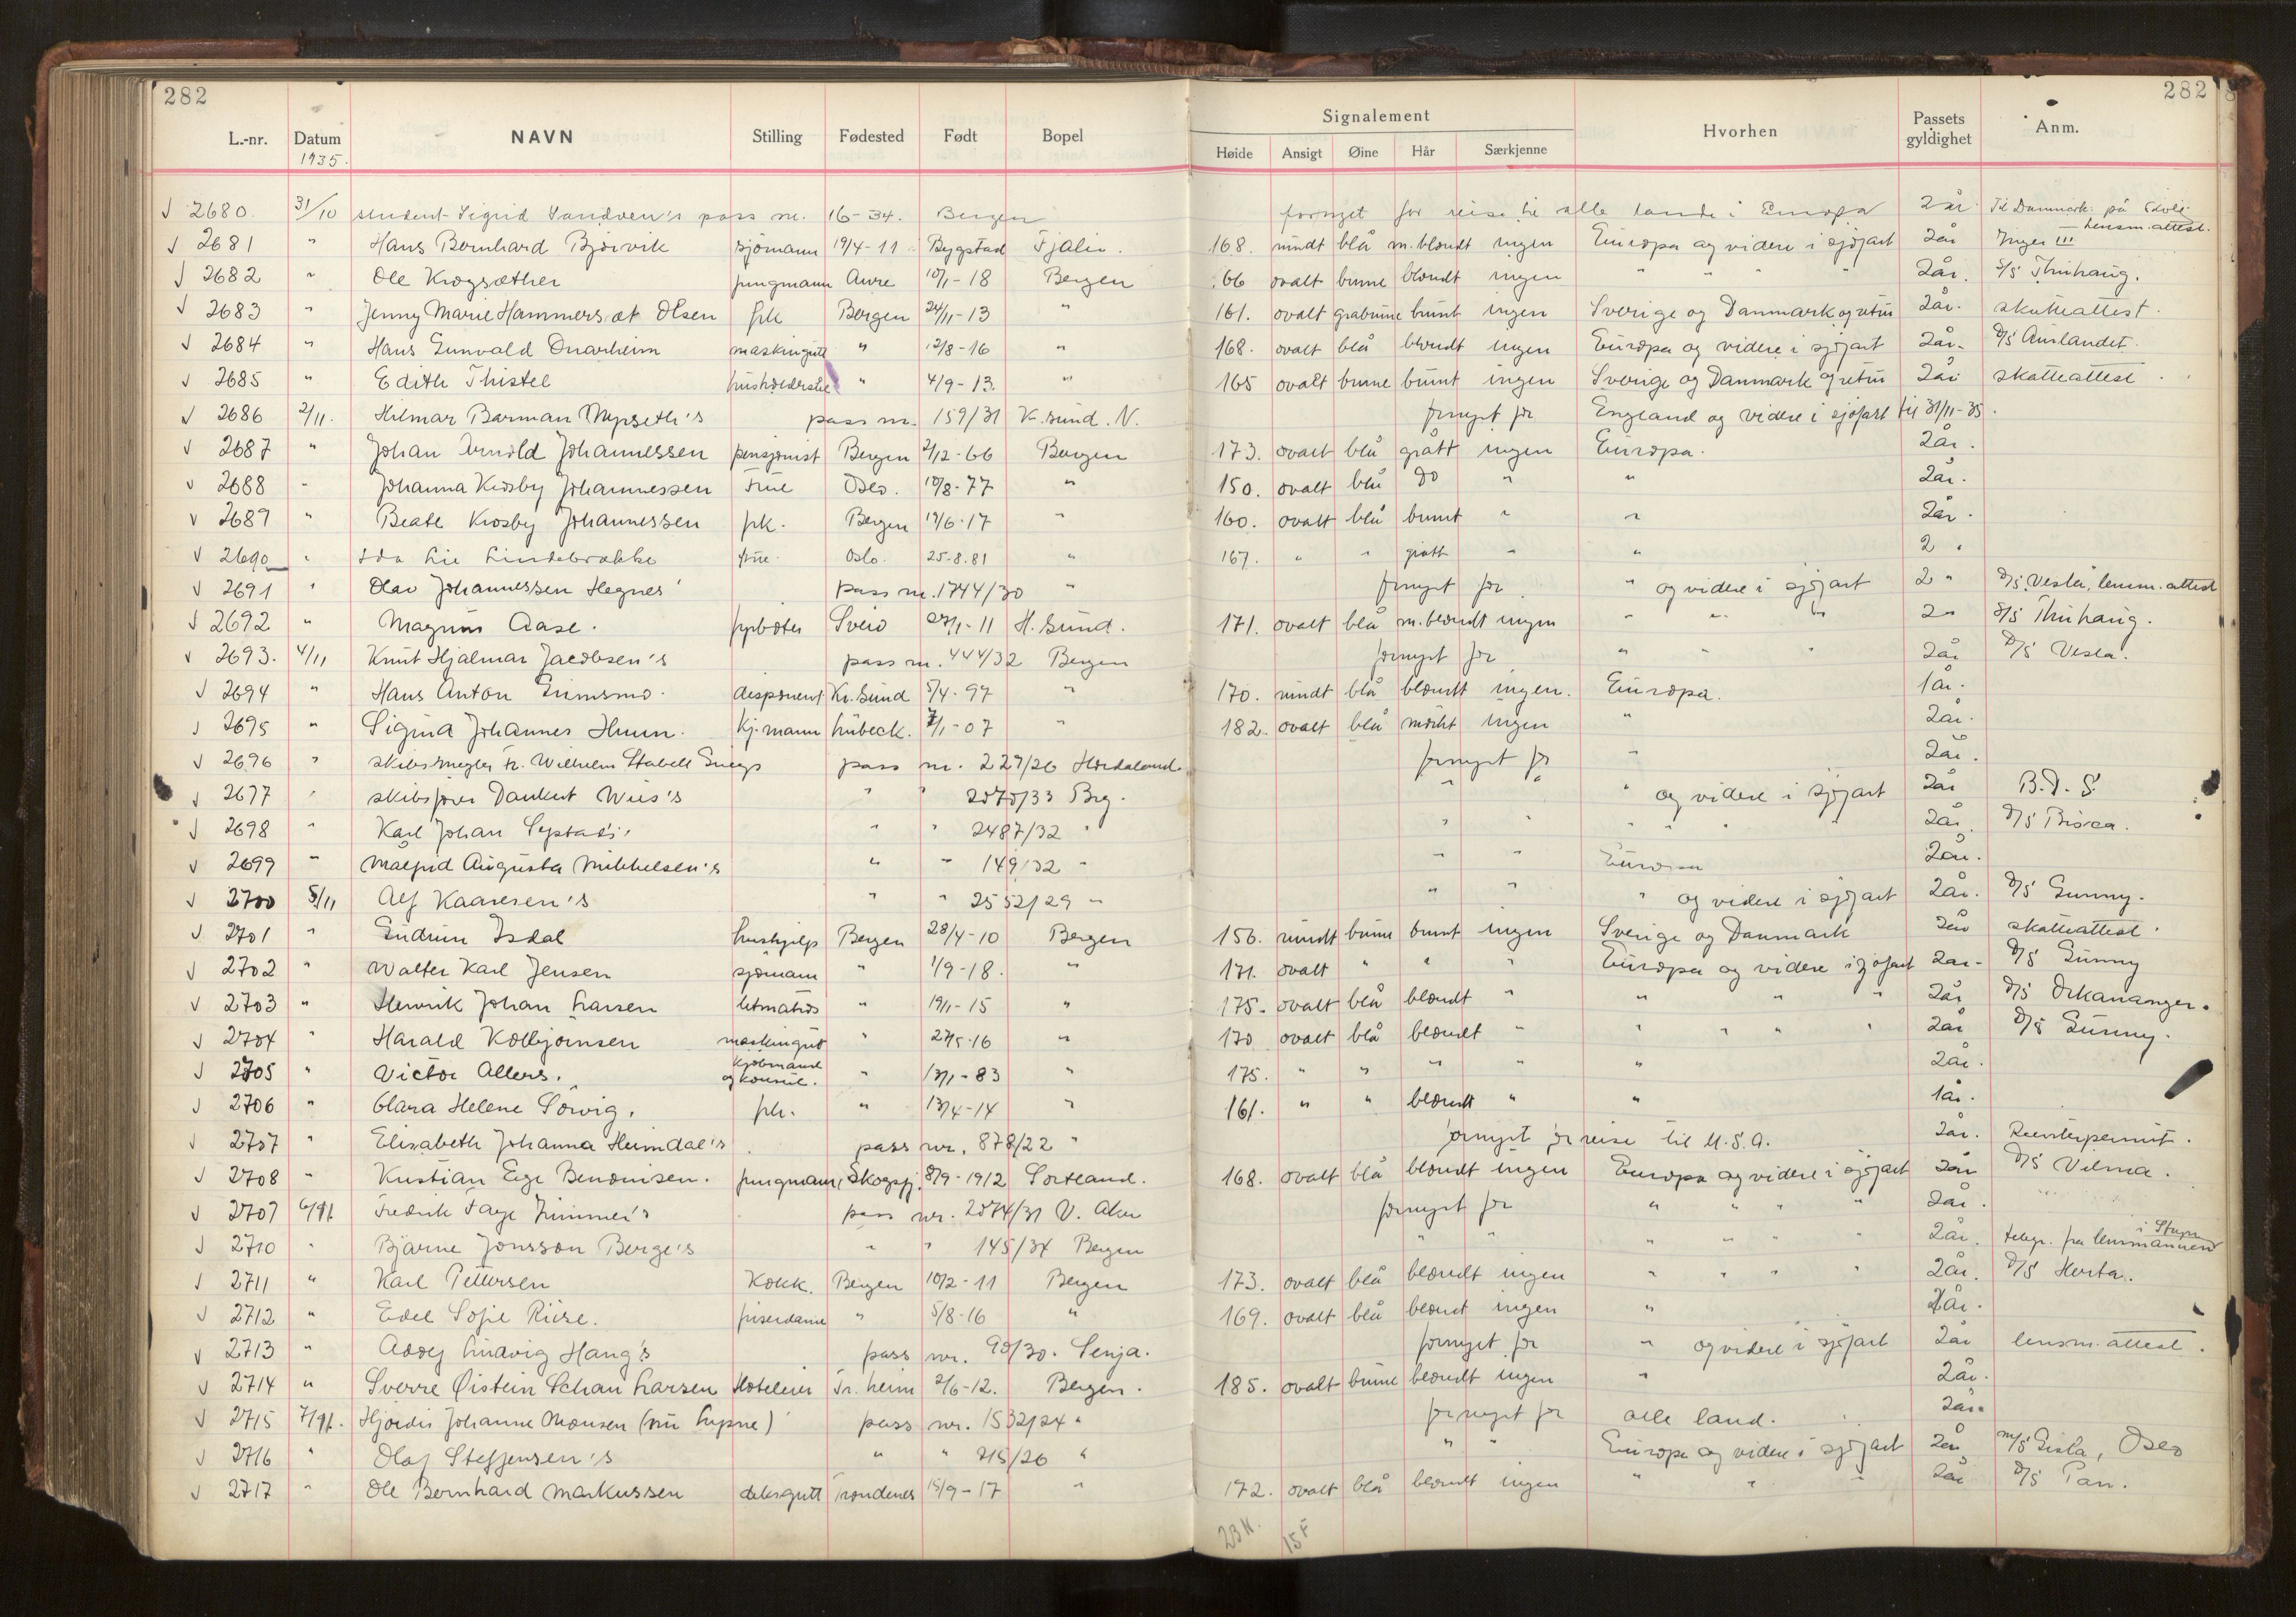 282 282
Signalement
L.-nr. Datum NAVN Stilling Fødested Født Bopel Høide Ansigt Øine Hår Særkjenne Hvorhen Passets gyldighet Anm.
1935.
2680. 31/10 student Sigrid Sandven's pass nr. 16-34. Bergen fornyet for reise til alle lande i Europa 2 år Til Danmark på
lensm. attest.
2681 " Hans Bernhard Bjørvik sjømann 19/4-11 Bygstad Fjaler. 168. rundt blå m.blondt ingen Europa og videre i sjøfart 2år Inger III
2682 " Ole Krogsæther jungmann Aure 10/1-18 Bergen 166 ovalt brune blondt ingen " " " 2år. D/S Thuhaug.
2683 " Jenny Marie Hammersæt Olsen frk Bergen 24/11-13 " 161. ovalt gråbrune brunt ingen Sverige og Danmark og retur 2år. skatteattest.
2684 " Hans Gunvald Onarheim maskingutt " 12/8-16 " 168. ovalt blå blondt ingen Europa og videre i sjøfart 2år. D/S Aurlandet.
2685 " Edith Thistel husholderske " 4/9-13. " 165 ovalt brune brunt ingen Sverige og Danmark og retur 2år skatteattest
2686 2/11. Hilmar Barman Mypseth's pass nr. 159/31 K.sund. N. fornyet for England og videre i sjøfart til 31/11-35.
2687 " Johan Arnold Johannessen pensjonist Bergen 2/12-66 Bergen 173. ovalt blå grått ingen Europa. 2år.
2688 " Johanna Krosby Johannessen Frue Oslo. 10/8-77 " 150. ovalt blå do " " 2år.
2689 " Beate Krosby Johannessen frk. Bergen 17/6-17 " 160. ovalt blå brunt " " 2år.
2690 " Ida Lie Lindebrække frue Oslo. 25.8.81 " 167. " " grått " " 2 "
2691 " Olav Johannessen Hegnes' pass nr. 1744/30 " fornyet for " og videre i sjøfart 2 " D/S Vesla, lensm. attest
2692 " Magnus Aase. fyrbøter Sveio 27/1-11 H.sund. 171. ovalt blå m.blondt ingen " " " 2 " D/S Thuhaug.
2693. 4/11 Knut Hjalmar Jacobsen's pass nr. 444/32 Bergen fornyet for " " " 2år D/S Vesla.
2694 " Hans Anton Grimsmo. disponent Kr.sund 5/4-97 " 170. rundt blå blondt ingen. Europa. 1år.
2695 " Sigurd Johannes Huun. Kj.mann Lübeck. 7/1-07 " 182. ovalt blå mørkt ingen " 2år.
2696 " skibsmegler Fr. Wilhelm Stabell Griegs pass nr. 227/26 Hordaland fornyet for " 2år.
2697 " skibsfører Dankert Wiis's " " 2070/33 Brg. " " " og videre i sjøfart 2år B.D.S.
2698 " Karl Johan " " 2487/32 " " " " " " 2år. D/S
2699 " Augusta Mikkelsen's " " 149/32 " " " Europa 2år.
2700 5/11 Alf Kaaresen's " " 2552/29 " " " " og videre i sjøfart 2år. D/S Gunny.
2701 " Gudrun Isdal hushjelp Bergen 28/4-10 Bergen 156. rundt brune brunt ingen Sverige og Danmark 2år skatteattest.
2702 " Walter Karl Jensen sjømann " 1/9-18. " 171. ovalt " " " Europa og videre i sjøfart 2år. D/S Gunny
2703 " Henrik Johan Larsen letmatros " 19/1-15 " 175. ovalt blå blondt " " " " 2år D/S Orkananger.
2704 " Harald Kolbjørnsen maskingutt " 27/5-16 " 170 ovalt blå blondt " " " " " 2år D/S Gunny.
2705 " Victor Allers. kjøbmand og konsul. " 13/1-83 " 175. " " " " " 2år.
2706 " Clara Helene Sørvig. frk. " 13/4-14 " 161. " " blondt " " 1år.
2707 " Elisabeth Johanna Heimdal's pass nr. 878/22 " fornyet for reise til U.S.A. 2år. Reenterpermit.
2708 " Kristian Eige Bendixsen. jungmann Skogsfj. 8/9-1912 Sortland. 168. ovalt blå blondt ingen Europa og videre i sjøfart 2år D/S Vilma.
2709 6/11. Fredrik Faye Zimmer's pass nr. 2074/31 V. Aker fornyet for " " " " 2år.
2710 " Bjarne Jonsson Berge's " " 145/34 Bergen " " " " " " 2år. telegr. fra lensmannen i
2711 " Karl Pettersen Kokk. Bergen 10/2-11 Bergen 173. ovalt blå blondt ingen " " " " 2år. D/S Herta.
2712 " Edel Sofie Riise. friserdame " 5/8-16 " 169. ovalt blå blondt ingen " 2år.
2713 " Ludvig Haug's pass nr. 90/30. Senja. fornyet for " og videre i sjøfart 2år lensm. attest.
2714 " Sverre Øistein Schau Larsen Hoteleier Tr.heim 2/6-12. Bergen. 185. ovalt brune blondt ingen " 2år.
2715 7/11. Hjørdis Johanne Monsen (nu Lypne) pass nr. 1532/24 " fornyet for alle land. 2år.
2716 " Olaf Steffensen's " " 215/26 " " " Europa og videre i sjøfart 2år m/S Gisla, Oslo
2717 " Ole Bernhard Markussen dekksgutt Trondenes 15/9-17 " 172. ovalt blå blondt ingen " " " 2år D/S Pan.
23 K. 15 F